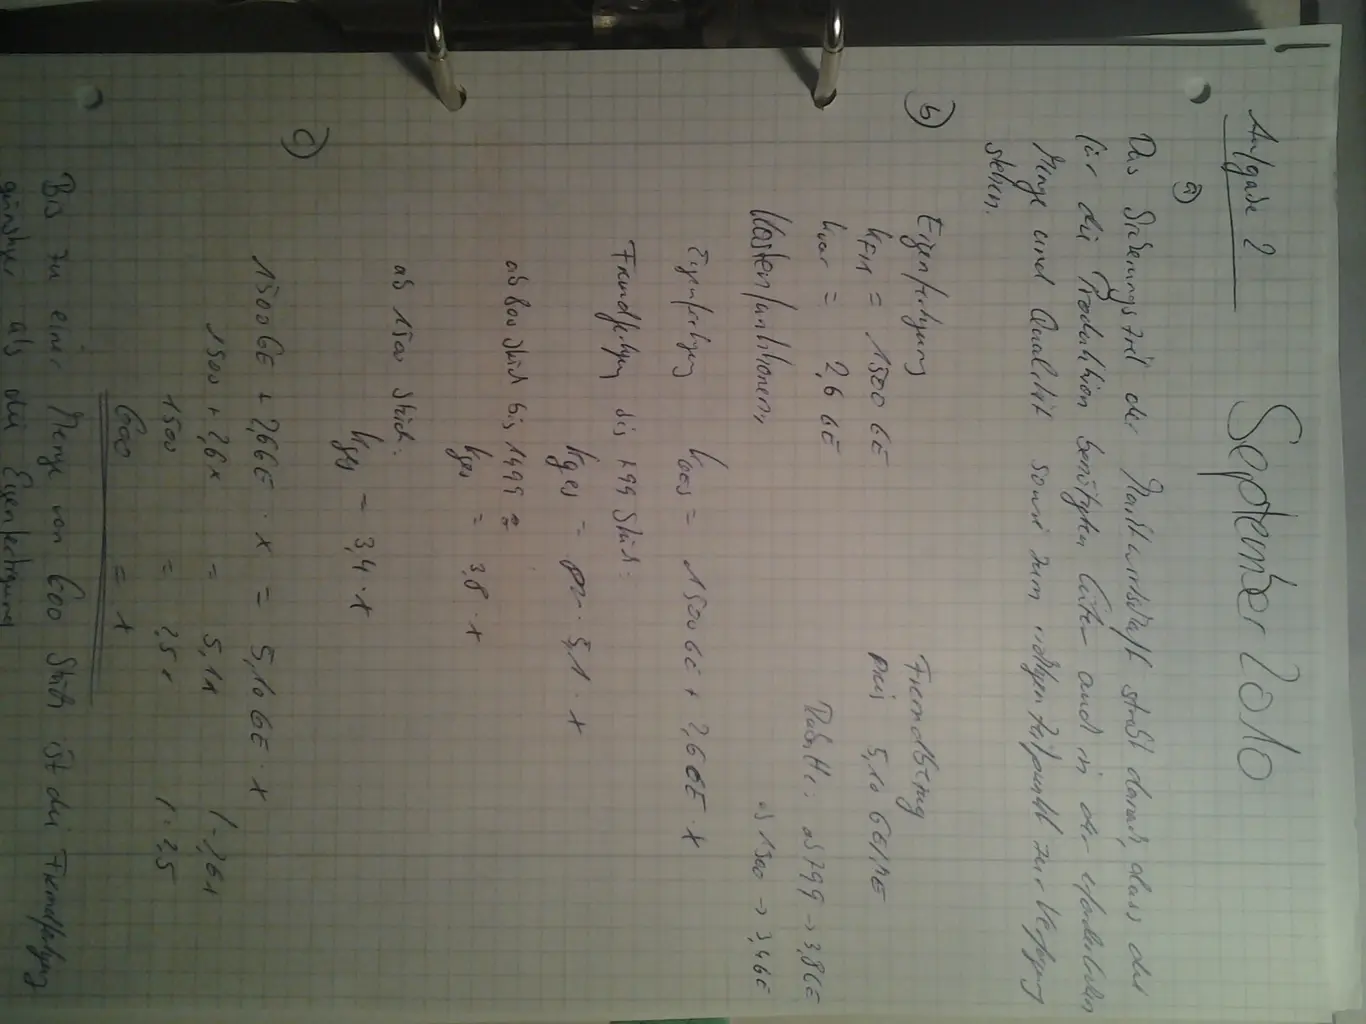 September 2010
Aufgabe 2
a)
Das Sicherungsziel der Marktwirtschaft strebt danach, dass die
für die Produktion benötigten Güter auch in der erforderlichen
Menge und Qualität sowie zum richtigen Zeitpunkt zur Verfügung
stehen.
b)
Eigenfertigung Fremdbezug
kFix = 1500 GE Preis 5,10 GE/ME
kvar = 2,6 GE Rabatte: ab 799 -> 3,8 GE
ab 1500 -> 3,4 GE
Kostenfunktionen
Eigenfertigung kGES = 1500 GE + 2,6 GE · x
Fremdfertigung bis 799 Stück:
kges = 5,1 · x
ab 800 Stück bis 1499:
kges = 3,8 · x
ab 1500 Stück:
kges = 3,4 · x
c)
1500 GE + 2,6 GE · x = 5,10 GE · x
1500 + 2,6x = 5,1x /-2,6x
1500 = 2,5x /:2,5
600 = x
Bis zu einer Menge von 600 Stück ist die Fremdfertigung
günstiger als die Eigenfertigung